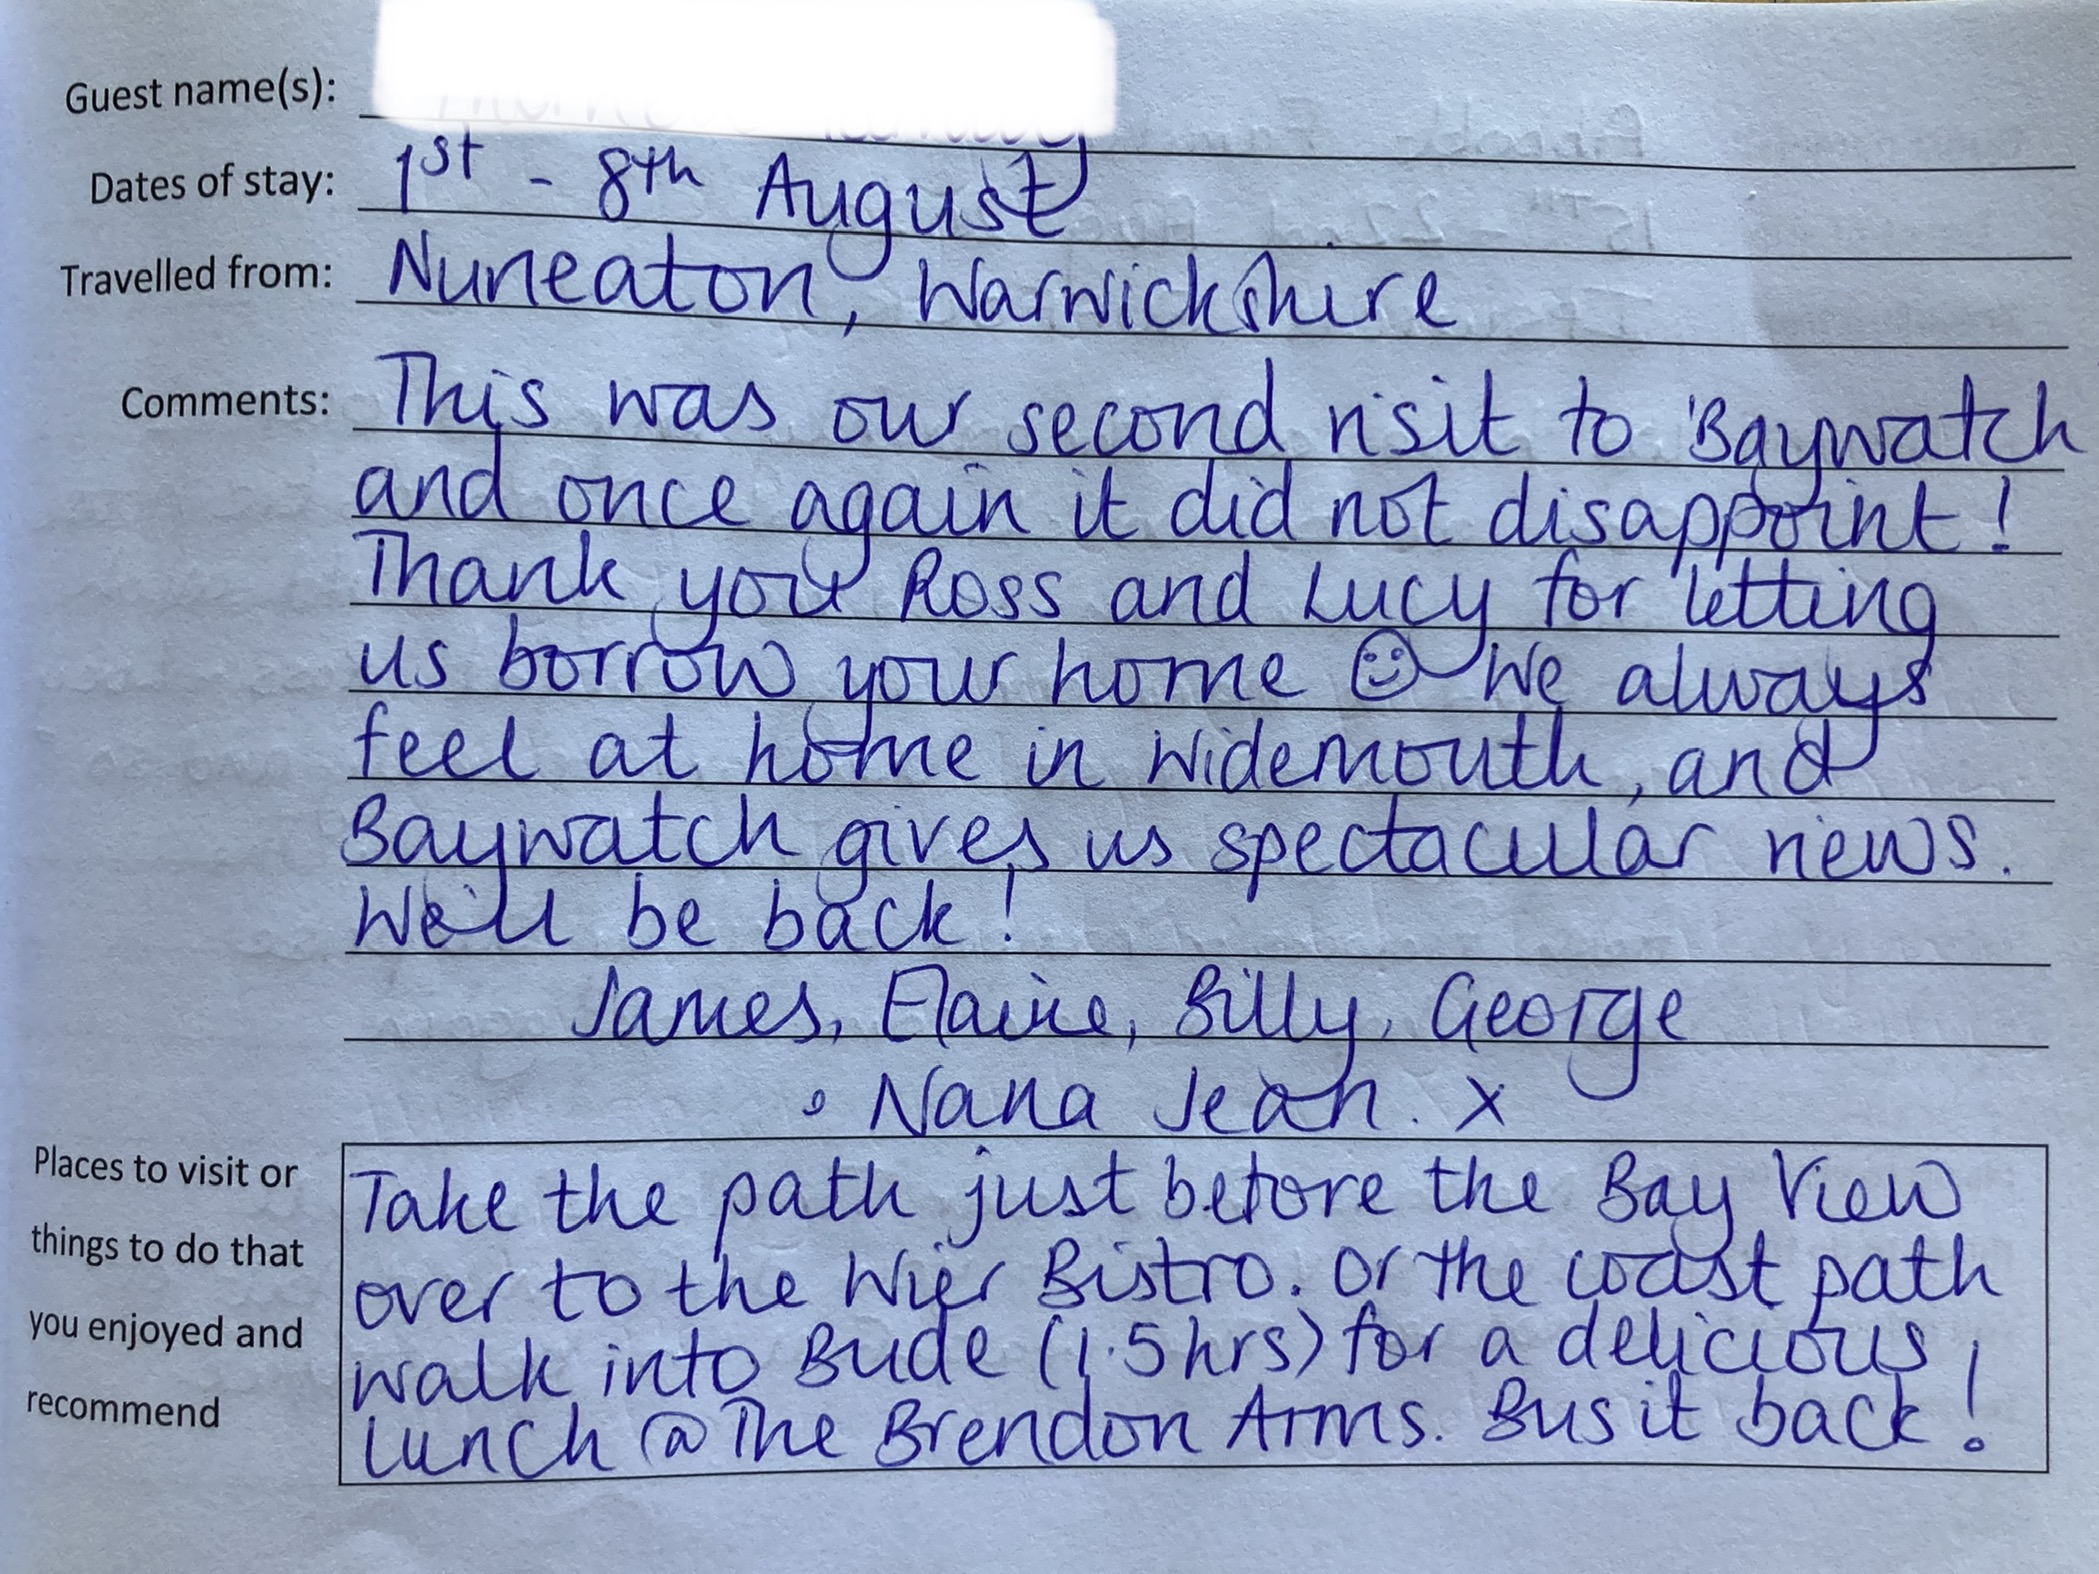 Guest name(s):
Dates of stay: 1st - 8th August
Travelled from: Nuneaton, Warwickshire
Comments: This was our second visit to Baywatch
and once again it did not disappoint!
Thank you Ross and Lucy for letting
us borrow your home ☺ We always
feel at home in Widemouth, and
Baywatch gives us spectacular views.
We'll be back!
James, Elaine, Billy, George
& Nana Jean. x
Places to visit or
things to do that
you enjoyed and
recommend
Take the path just before the Bay View
over to the Wier Bistro. Or the coast path
walk into Bude (1.5hrs) for a delicious
lunch @ The Brendon Arms. Bus it back!